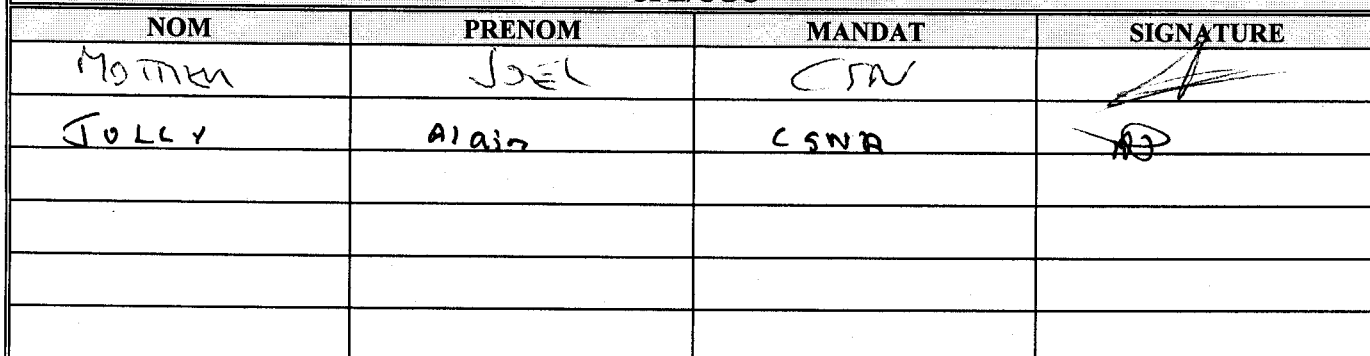 NOM PRENOM MANDAT SIGNATURE
JOEL CSN
JOLLY Alain CSNA